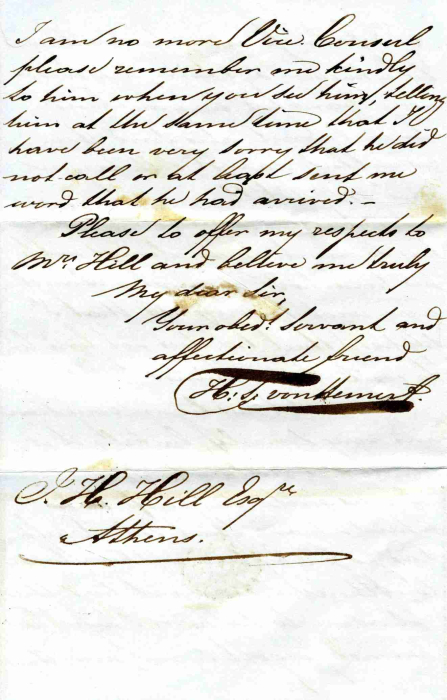 I am no more Vice Consul
please remember me kindly
to him when you see him, telling
him at the same time that I
have been very sorry that he did
not call or at least sent me
word that he had arrived. -
Please to offer my respects to
Mrs. Hill and believe me truly
My dear Sir,
Your obedt. Servant and
affectionate friend
H. S. van Hemert.
J. H. Hill Esqre
Athens.